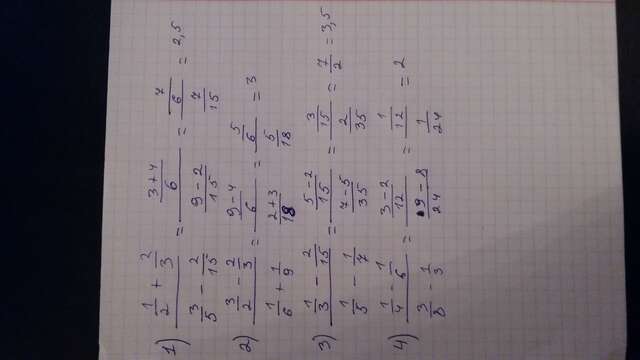 1) (1/2 + 2/3) / (3/5 - 2/15) = ((3+4)/6) / ((9-2)/15) = (7/6) / (7/15) = 2,5
2) (3/2 - 2/3) / (1/6 + 1/9) = ((9-4)/6) / ((2+3)/18) = (5/6) / (5/18) = 3
3) (1/3 - 2/15) / (1/5 - 1/7) = ((5-2)/15) / ((7-5)/35) = (3/15) / (2/35) = 7/2 = 3,5
4) (1/4 - 1/6) / (3/8 - 1/3) = ((3-2)/12) / ((9-8)/24) = (1/12) / (1/24) = 2